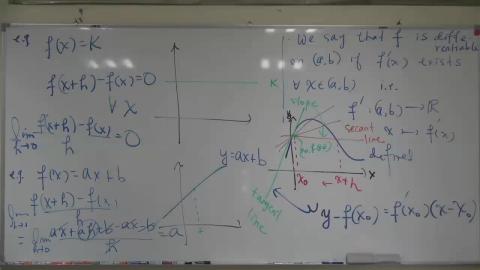 e.g f(x)=K
f(x+h)-f(x)=0
∀ x
lim h→0 f(x+h)-f(x) / h = 0
e.g. f(x)=ax+b
lim f(x+h)-f(x) / h
= lim h→0 ax+ah+b-ax-b / h = a
K
y=ax+b
We say that f is diffe
rentiable
on (a,b) if f'(x) exists
∀ x∈(a,b) i.e.
f':(a,b)→ℝ
x ↦ f'(x)
slope
secant
line
defined
x₀
x+h
x
tangent
line
y-f(x₀)=f'(x₀)(x-x₀)